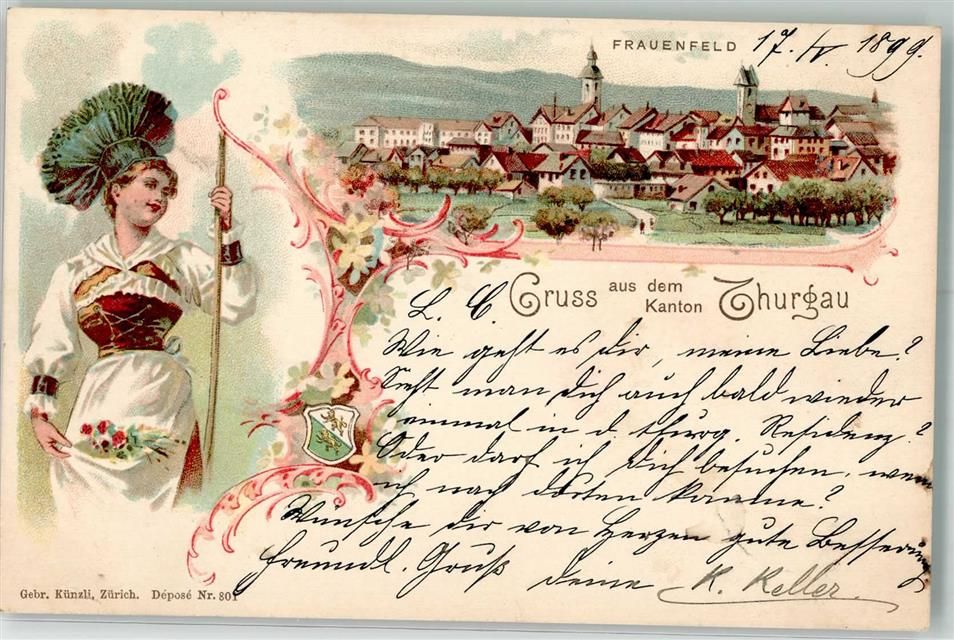 FRAUENFELD 17. IV. 1899.
Gruss aus dem Kanton Thurgau
L. C.
Wie geht es dir, meine Liebe?
Sieht man dich auch bald wieder
einmal in d. thurg. Residenz?
Oder darf ich dich besuchen, wenn
ich nach dorten komme?
Wünsche dir von Herzen gute Besserung
Freundl. Gruß deine K. Keller.
Gebr. Künzli, Zürich. Déposé Nr. 801